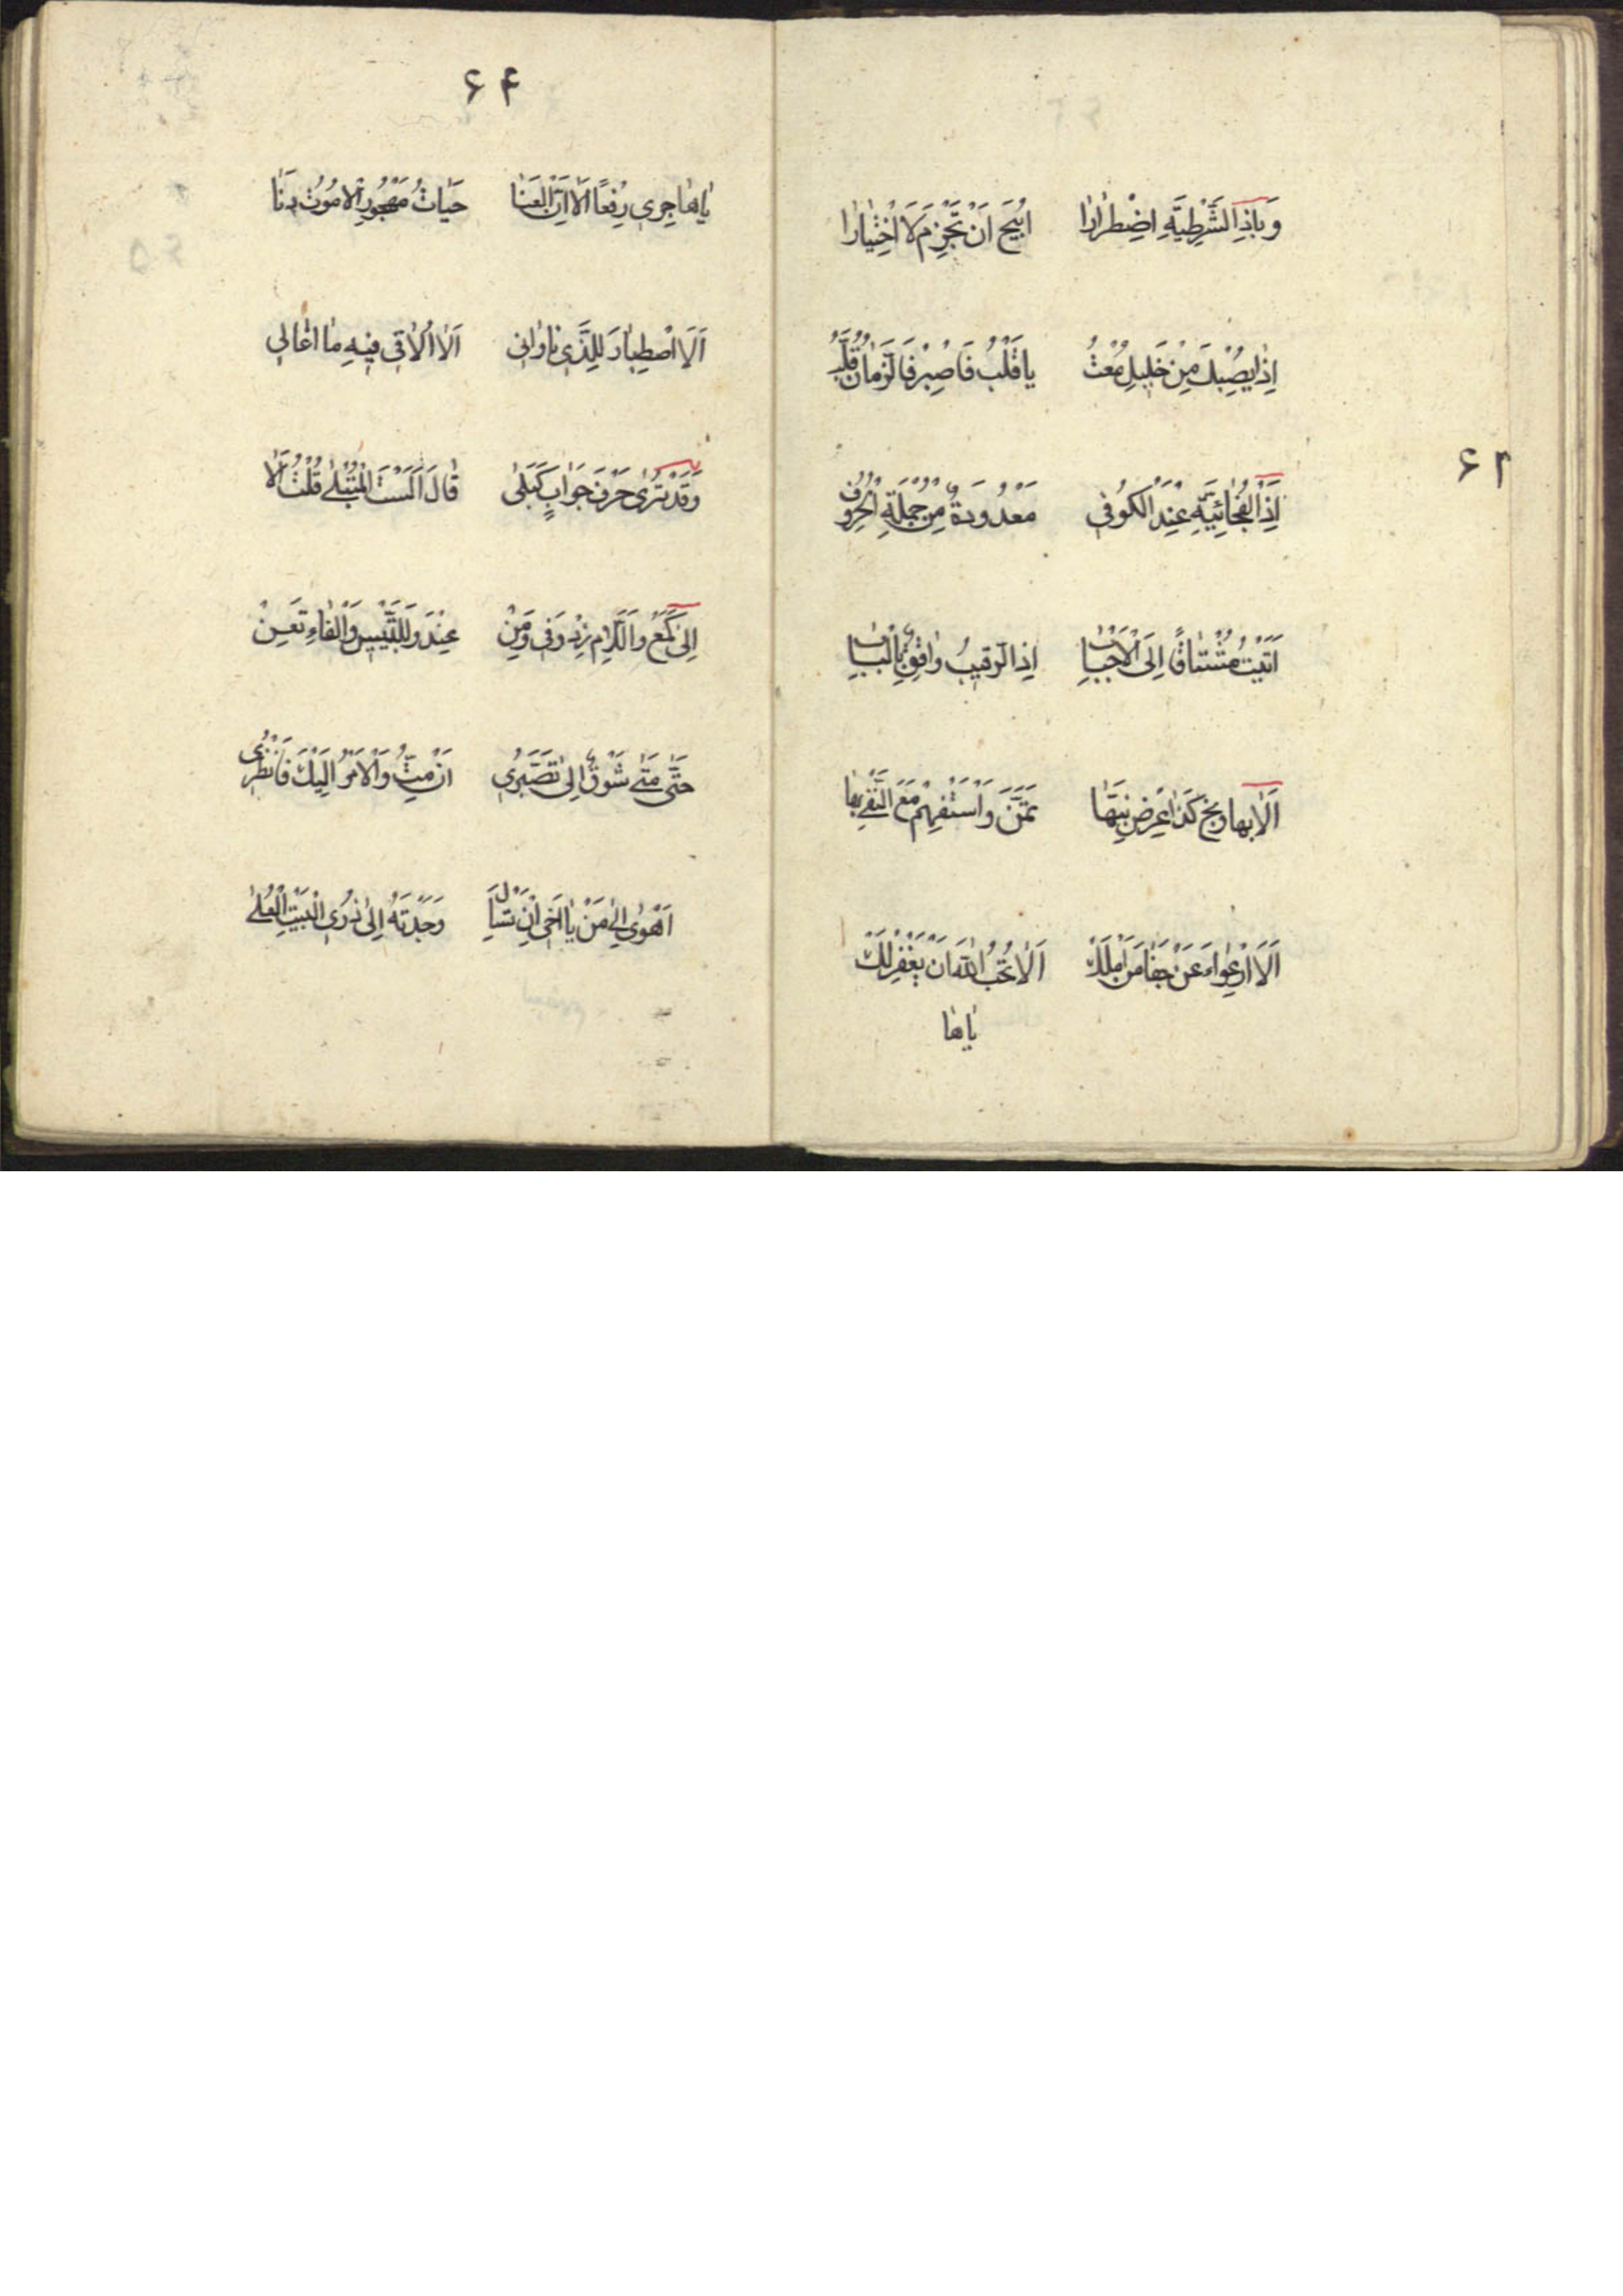 وَبِاِذِ الشَّرْطِيَّةِ اضْطِرٰارًا اُبِيحَ اَنْ تَجْزِمَ لَا اخْتِيٰارًا
اِذٰا يُصِبْكَ مِنْ خَلِيلٍ مُعْنِتُ يا قَلْبُ فَاصْبِرْ فَالزَّمٰانُ قُلَّبُ
۶۲
اِذَا الْفُجٰائِيَّةِ عِنْدَ الْكُوفِي مَعْدُودَةٌ مِنْ جُمْلَةِ الْحُرُوفِ
اَتَيْتُ مُشْتٰاقًا اِلَى الْاَحْبٰابِ اِذَا الرَّقِيبُ وٰاقِفٌ بِالْبٰابِ
اَلٰا بِها وبخ كَذٰا عْرِضْ نَبِّهٰا تَمَنَّ وَاسْتَفْهِمْ مَعَ النَّفْيِ بِهٰا
اَلَا ارْعِوٰاءَ عَنْ جَفٰا مَنْ اَمَّلَكْ اَلٰا تُحِبُّ اللّٰهَ اَنْ يَغْفِرَ لَكْ
يٰا هٰا
۶۴
يٰا هٰاجِرِي رِفْقًا اَلٰا اِنَّ الْعَنٰا حَيٰاتُ مَهْجُورٍ اَلٰا مُوتُ دَنٰا
اَلَا اصْطِبٰارَ لِلَّذِي نٰاوٰانِي اَلٰا اُلٰاقِي فِيهِ مٰا اعٰالِي
وَقَدْ تُرٰى حَرْفَ جَوٰابٍ كَبَلٰى قٰالَ اَلَسْتَ الْمُبْتَلٰى قُلْتُ اَلٰا
اِلٰى كَمَعْ وَاللّٰامِ زِدْ وَفِي وَمِنْ عِنْدَ وَلِلتَّبْيِيسِ وَالْفٰاءِ تَعِنْ
حَتّٰى مَتٰى شَوْقٌ اِلٰى تَصَبُّرِي اَنْ مِتُّ وَالْاَمْرُ اِلَيْكَ فَانْظُرِي
اَهْوٰى اِلٰى مَنْ يٰا اَخِي اِنْ تَسْاَلْ وَجَدْتَهُ اِلٰى ذُرَى الْبَيْتِ الْعُلٰى